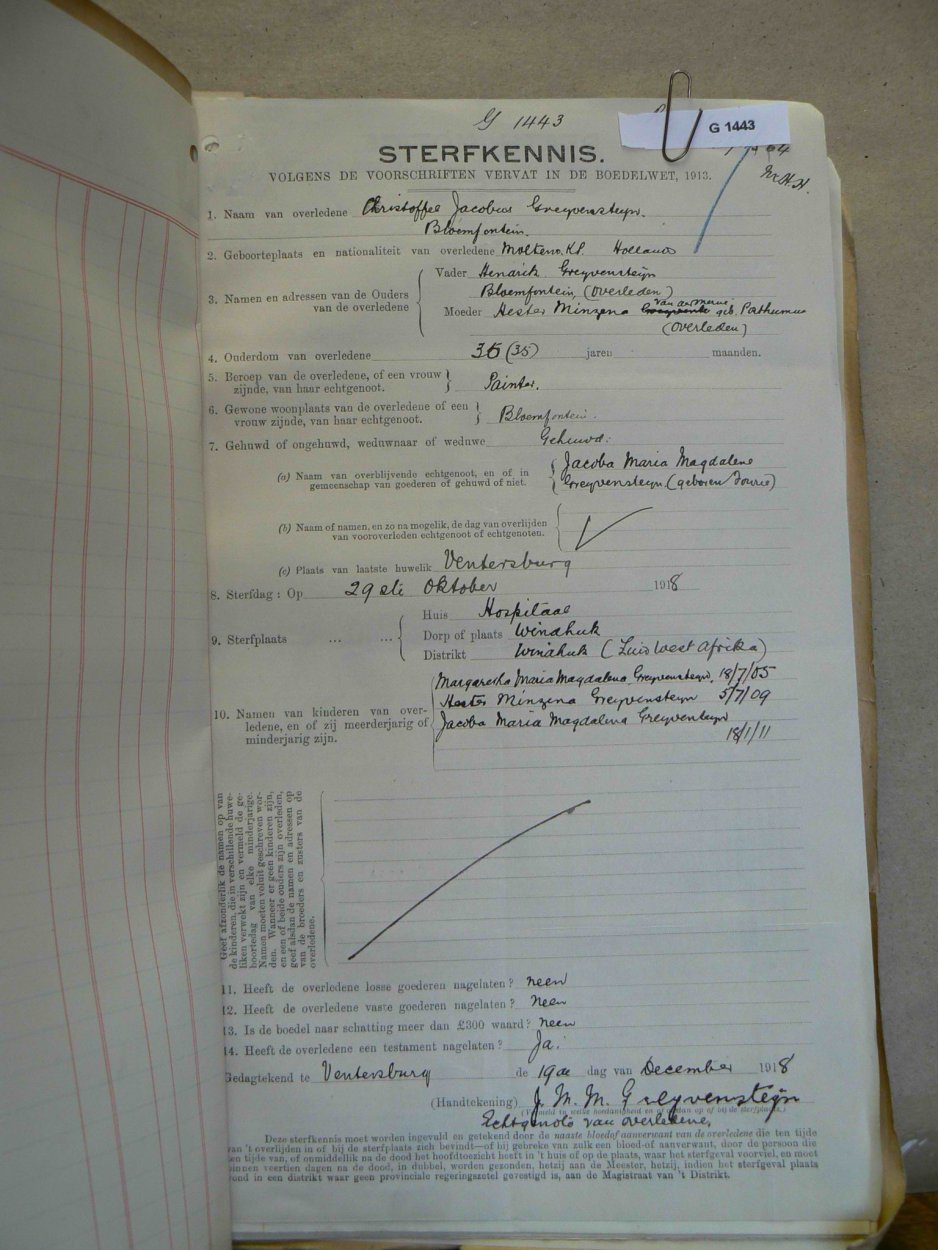 G 1443
G 1443
STERFKENNIS.
VOLGENS DE VOORSCHRIFTEN VERVAT IN DE BOEDELWET, 1913.
1. Naam van overledene Christoffel Jacobus Greyvensteyn.
Bloemfontein.
2. Geboorteplaats en nationaliteit van overledene Molteno. K.P. Hollands
3. Namen en adressen van de Ouders van de overledene
Vader Hendrik Greyvensteyn
Bloemfontein, (overleden)
Moeder Hester Minzena van der Merwe geb. Posthumus
(overleden)
4. Ouderdom van overledene 35 (35) jaren maanden.
5. Beroep van de overledene, of een vrouw zijnde, van haar echtgenoot. Painter.
6. Gewone woonplaats van de overledene of een vrouw zijnde, van haar echtgenoot. Bloemfontein.
7. Gehuwd of ongehuwd, weduwnaar of weduwe Gehuwd:
(a) Naam van overblijvende echtgenoot, en of in gemeenschap van goederen of gehuwd of niet.
Jacoba Maria Magdalene
Greyvensteyn (geboren Fourie)
(b) Naam of namen, en zo na mogelik, de dag van overlijden van vooroverleden echtgenoot of echtgenoten.
(c) Plaats van laatste huwelik Ventersburg
8. Sterfdag: Op 29ste Oktober 1918
9. Sterfplaats ... ...
Huis Hospitaal
Dorp of plaats Windhuk
Distrikt Windhuk (Zuid West Afrika)
10. Namen van kinderen van overledene, en of zij meerderjarig of minderjarig zijn.
Margaretha Maria Magdalena Greyvensteyn, 18/7/05
Hester Minzena Greyvensteyn 5/7/09
Jacoba Maria Magdalena Greyventeyn
18/1/11
Geef afzonderlik de namen op van
de kinderen, die in verschillende huwe-
liken verwekt zijn en vermeld de ge-
boortedag van elke minderjarige.
Namen moeten voluit geschreven wor-
den. Wanneer er geen kinderen zijn,
en een of beide ouders zijn overleden,
geef alsdan de namen en adressen op
van de broeders en zusters van de
overledene.
11. Heeft de overledene losse goederen nagelaten? neen
12. Heeft de overledene vaste goederen nagelaten? Neen
13. Is de boedel naar schatting meer dan £300 waard? neen
14. Heeft de overledene een testament nagelaten? Ja.
Gedagtekend te Ventersburg de 19de dag van December 1918
(Handtekening) J. M. M. Greyvensteyn
Echtgenote van overledene.
Deze sterfkennis moet worden ingevuld en getekend door de naaste bloedof aanverwant van de overledene die ten tijde
van 't overlijden in of bij de sterfplaats zich bevindt—of bij gebreke van zulk een bloed-of aanverwant, door de persoon die
ten tijde van, of onmiddellik na de dood het hoofdtoezicht heeft in 't huis of op de plaats, waar het sterfgeval voorviel, en moet
binnen veertien dagen na de dood, in dubbel, worden gezonden, hetzij aan de Meester, hetzij, indien het sterfgeval plaats
vond in een distrikt waar geen provinciale regeringszetel gevestigd is, aan de Magistraat van 't Distrikt.